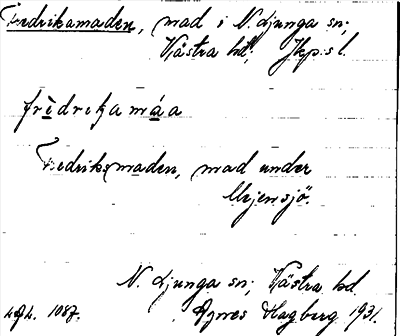 Fredrikamaden, mad i N. Ljunga sn;
Västra hd; Jkp:s l.
frìdrika máa
Fredriksmaden, mad under
Mjensjö.
N. Ljunga sn; Västra hd.
Agnes Hagberg 1931.
1087.